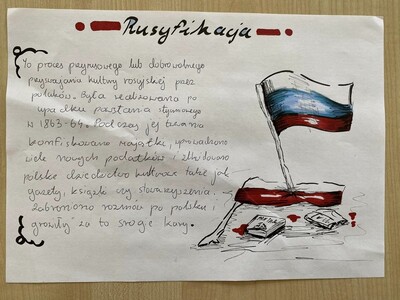 Rusyfikacja
To proces przymusowego lub dobrowolnego
przyswajania kultury rosyjskiej przez
polaków. Była realizowana po
upadku powstania styczniowego
w 1863-64. Podczas jej trwania
konfiskowano majątki, wprowadzono
wiele nowych podatków i zlikwidowano
polskie dziedzictwo kulturowe takie jak
gazety, książki czy stowarzyszenia,
zabroniono rozmów po polsku i
groziły za to srogie kary.